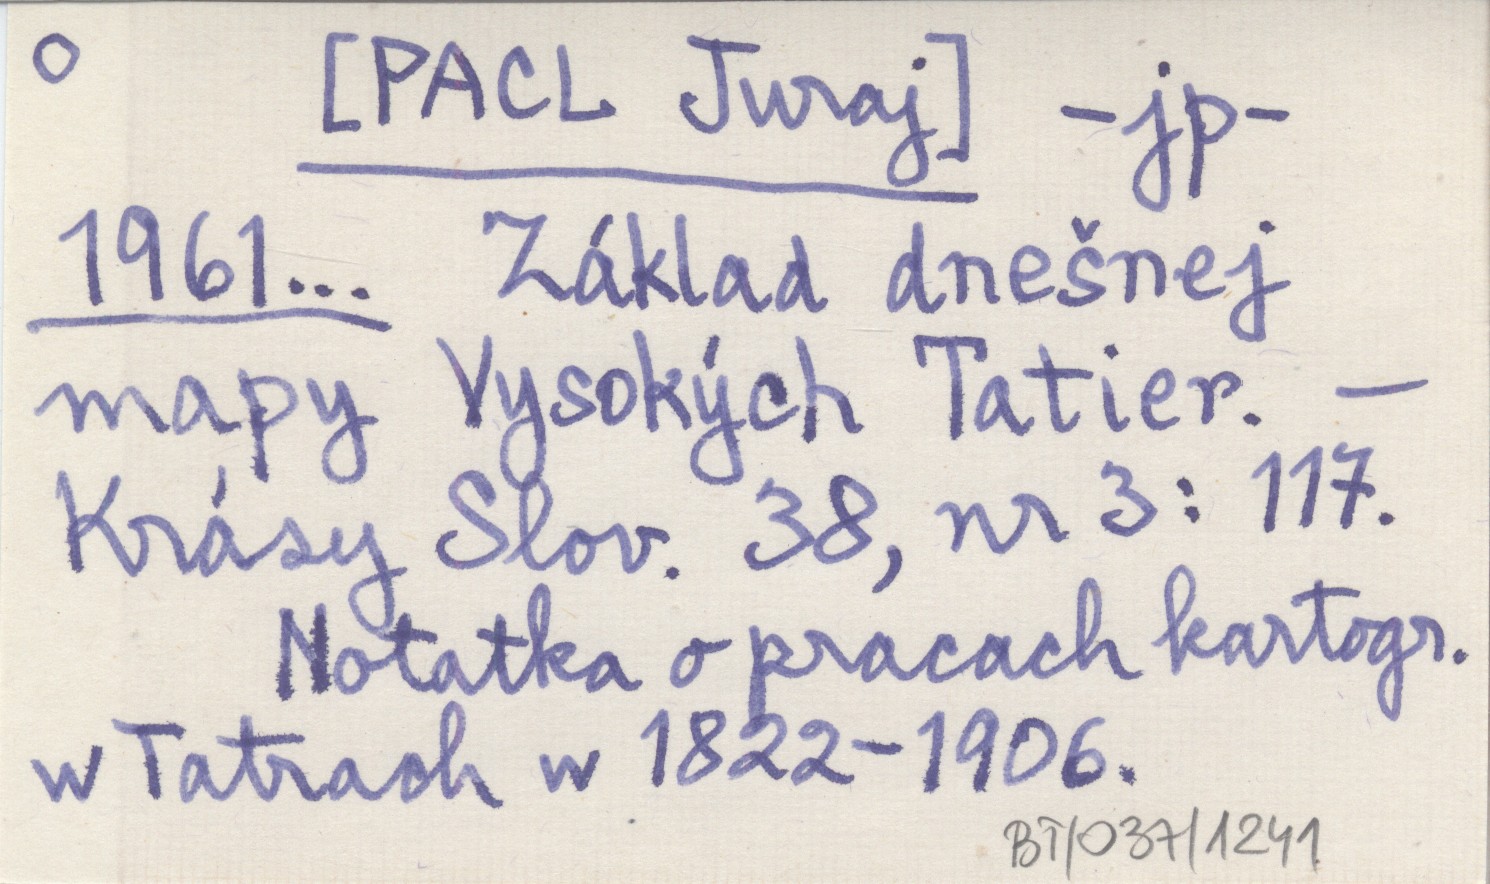 o [PACL Juraj] -jp-
1961... Základ dnešnej
mapy Vysokých Tatier. —
Krásy Slov. 38, nr 3: 117.
Notatka o pracach kartogr.
w Tatrach w 1822-1906.
BT/037/1241